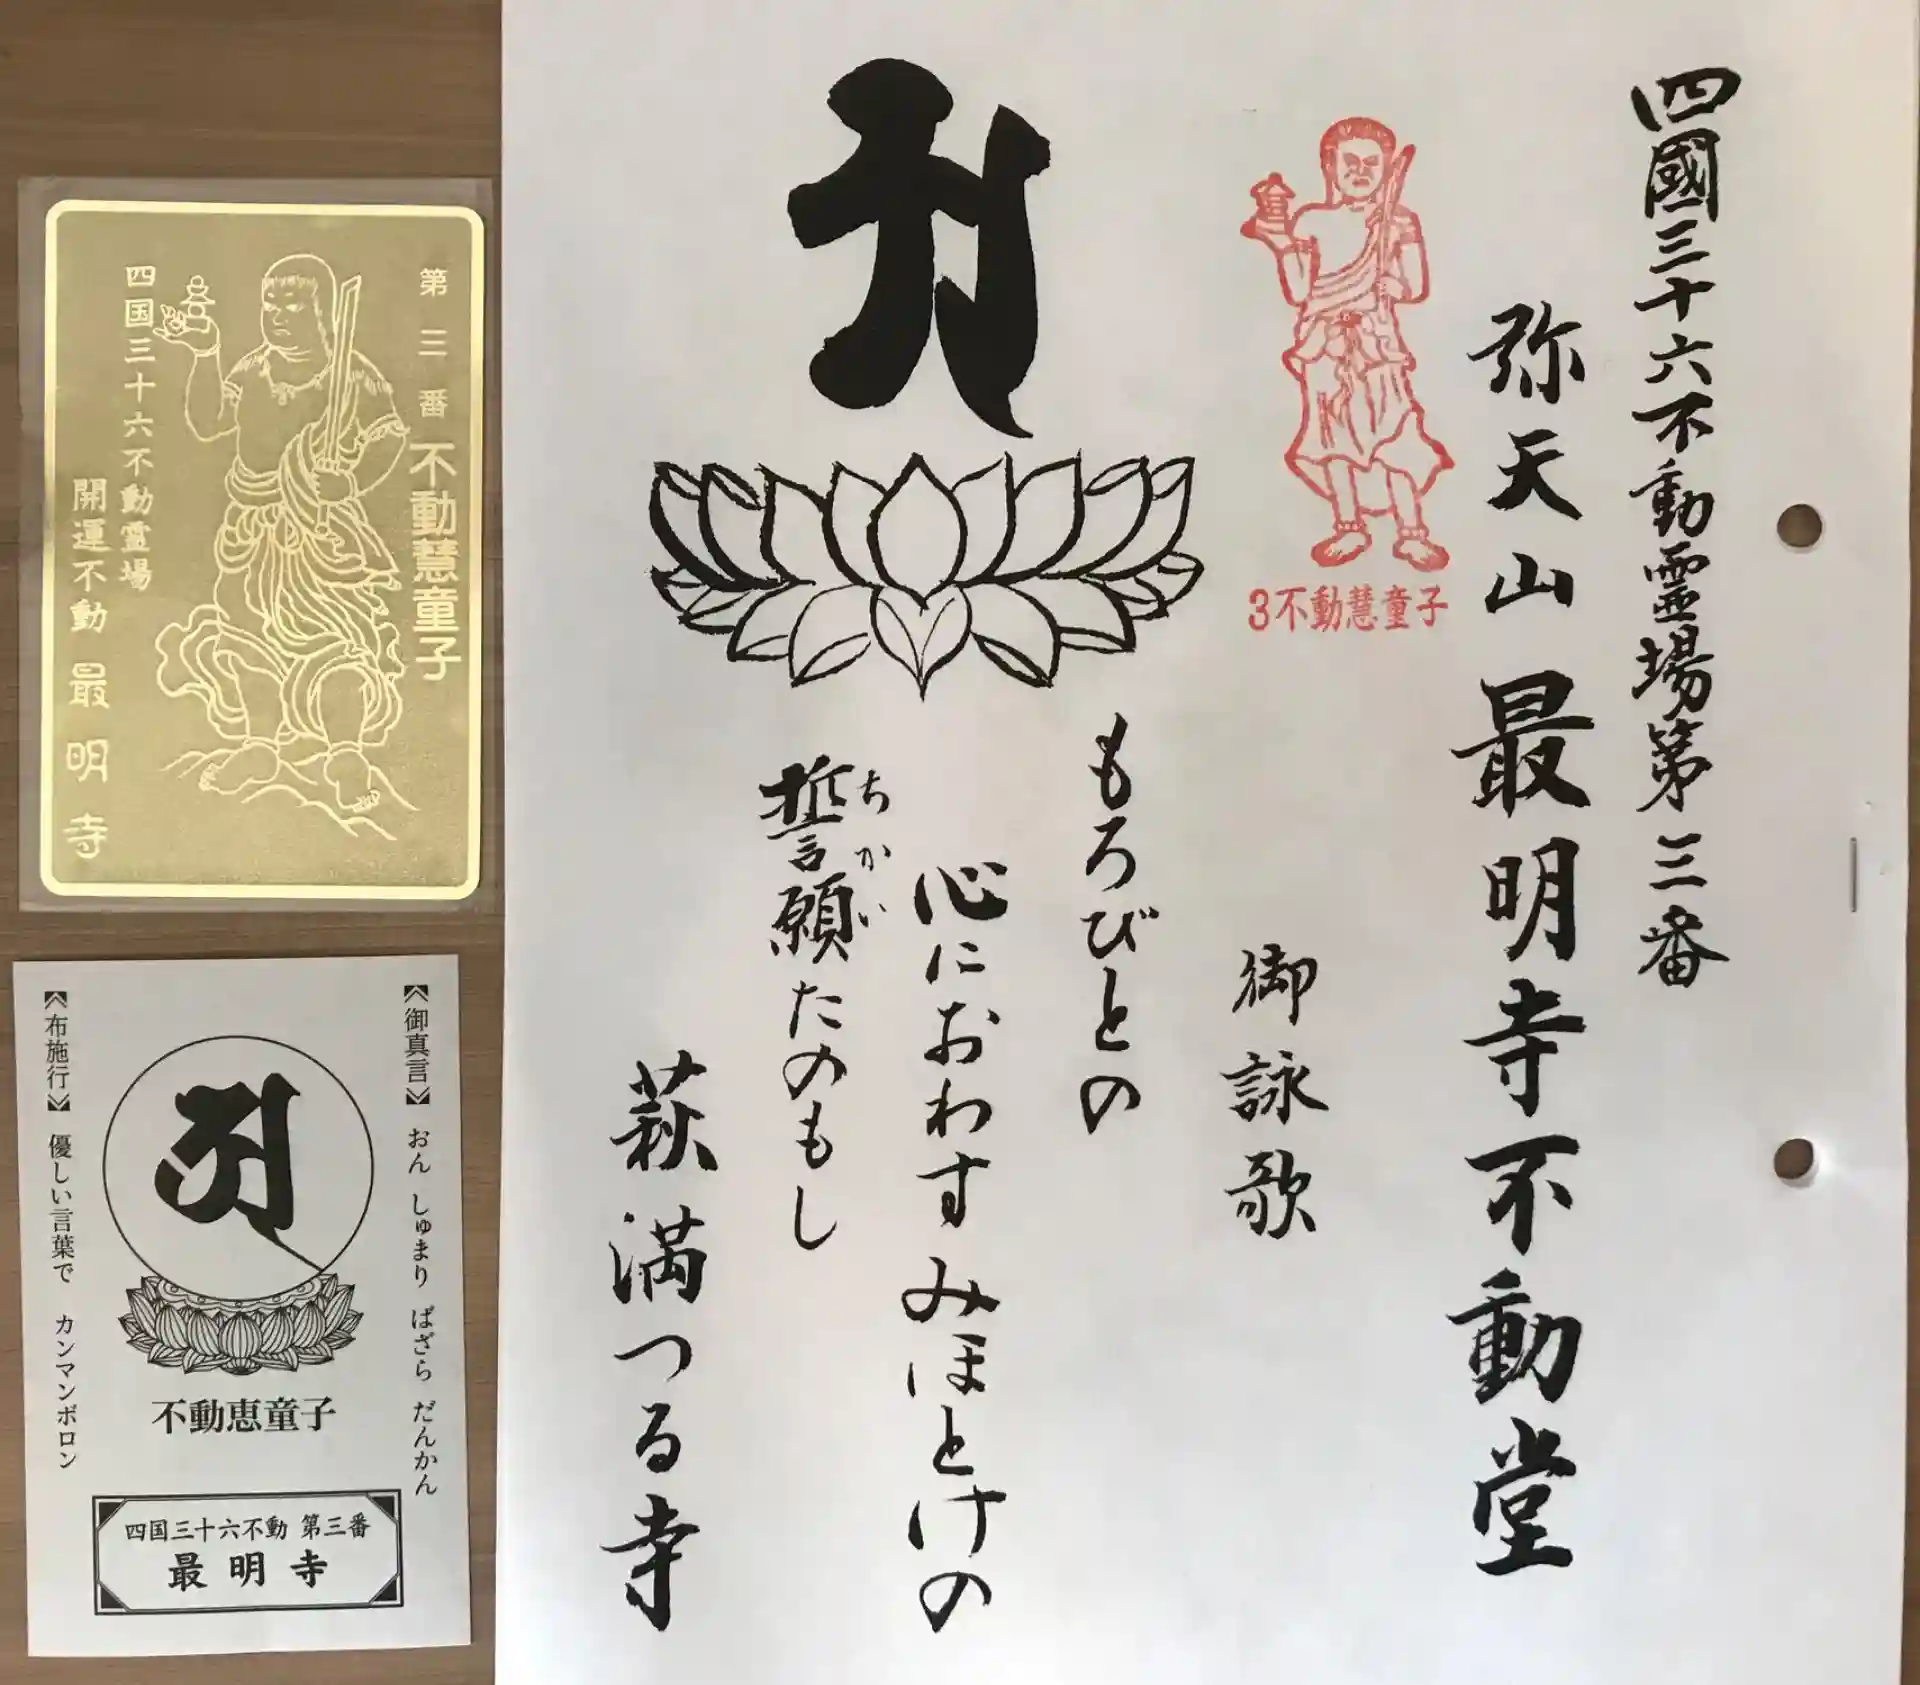 四國三十六不動霊場第三番
弥天山最明寺不動堂
3不動慧童子
御詠歌
もろびとの
心におわすみほとけの
ちかい
誓願たのもし
萩満つる寺
第三番不動慧童子
四国三十六不動霊場
開運不動 最明寺
《御真言》 おん しゅまり ばざら だんかん
不動恵童子
《布施行》 優しい言葉で カンマンボロン
四国三十六不動 第三番
最明寺